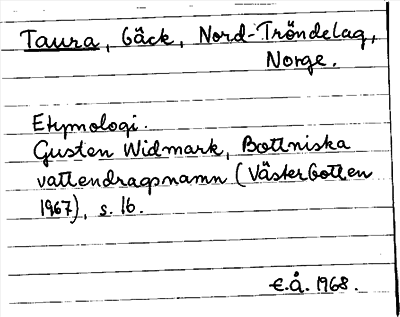 Taura, bäck, Nord-Tröndelag,
Norge.
Etymologi.
Gusten Widmark, Bottniska
vattendragsnamn (Västerbotten
1967), s. 16.
E.Å. 1968.